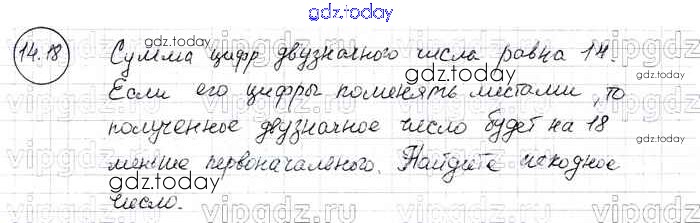 gdz.today
14.18 Сумма цифр двузначного числа равна 14.
gdz.today
gdz.today
Если его цифры поменять местами, то
gdz.today
полученное двузначное число будет на 18
меньше первоначального. Найдите исходное
gdz.today
число.
vipgdz.ru